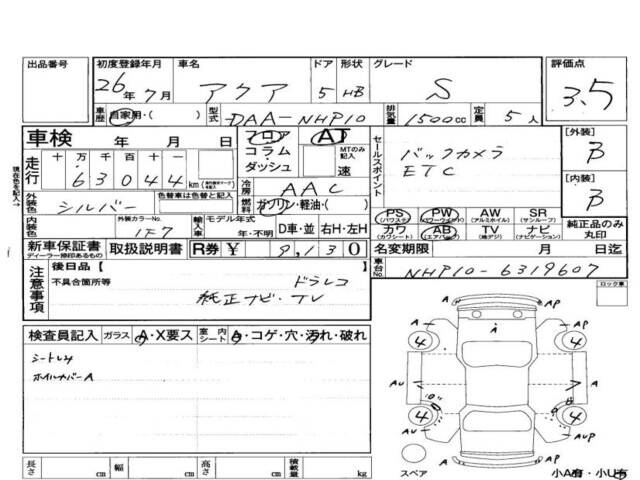 出品番号 初度登録年月 車名 ドア 形状 グレード 評価点
26年 7月 アクア 5 HB S 3.5
車歴 自家用・( ) 型式 DAA-NHP10 排気量 1500cc 定員 5人
車検 年 月 日
フロア コラム・ダッシュ AT MTのみ記入 速
セールスポイント バックカメラ ETC
[外装] B
[内装] B
走行 十 万 千 百 十 一
63044 km
現在色を記入→
冷房 AAC
外装色 シルバー 色替車は色替と記入
燃料 ガソリン・軽油・( )
PS (パワステ) PW (パワーウインド) AW (アルミホイル) SR (サンルーフ)
カワ (カワシート) AB (エアバック) TV (地デジ) ナビ (ナビゲーション)
純正品のみ丸印
内装色 外装カラーNo. 1F7 輸入車 モデル年式 年・不明 D車・並 右H・左H
新車保証書 ディーラー捺印あるもの 取扱説明書 R券 ¥ 9,130
名変期限 月 日迄
注意事項 後日品【 】
車台No. NHP10-6319607
不具合箇所等 ドラレコ
純正ナビ・TV
ロック車
検査員記入 ガラス A・X要ス 室内シート キ・コゲ・穴・汚れ・破れ
シートしみ
ホイルカバーA
A A AP
A AP
4 4
AU A A
AU "0" B
4 4
A AUP
A AP
スペア 小A有・小U有
長さ cm 幅 cm 高さ cm 積載量 kg